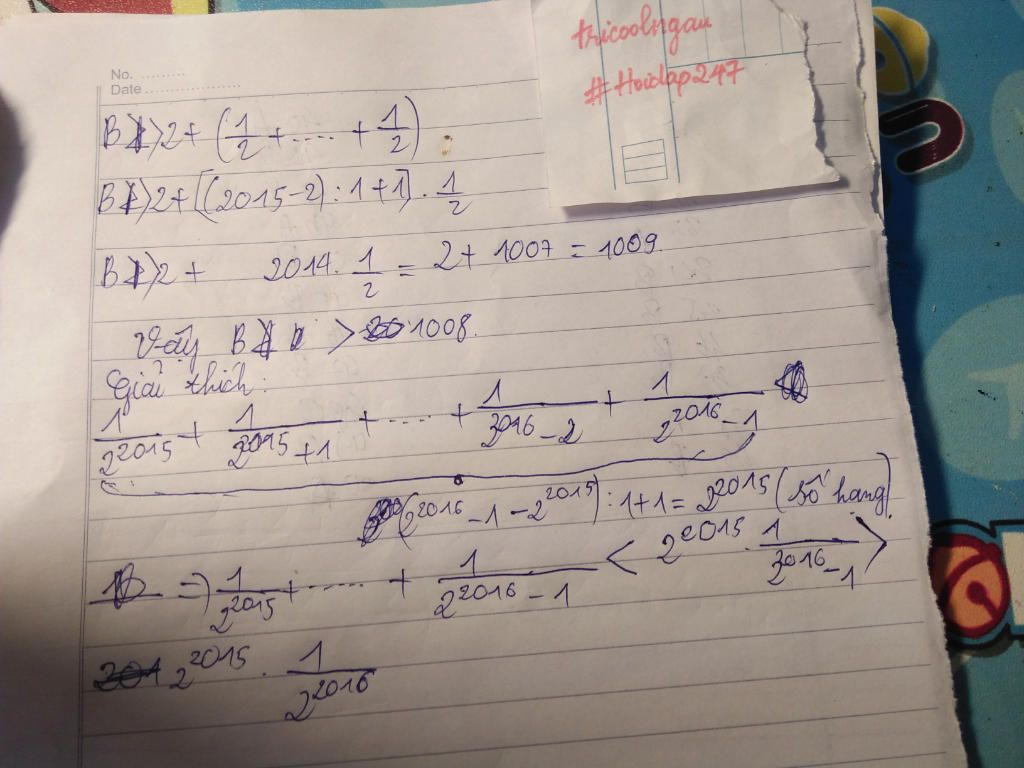 tricoolngau
#Hoidap247
No. ..........
Date ......................
B > 2 + (1/2 + .... + 1/2)
B > 2 + [(2015 - 2) : 1 + 1] . 1/2
B > 2 + 2014 . 1/2 = 2 + 1007 = 1009.
Vậy B > 1008.
Giải thích:
1/2^2015 + 1/2^2015 + 1 + .... + 1/2^2016 - 2 + 1/2^2016 - 1
(2^2016 - 1 - 2^2015) : 1 + 1 = 2^2015 (số hạng)
=> 1/2^2015 + ..... + 1/2^2016 - 1 < 2^2015 . 1/2^2016 - 1 >
2^2015 . 1/2^2016